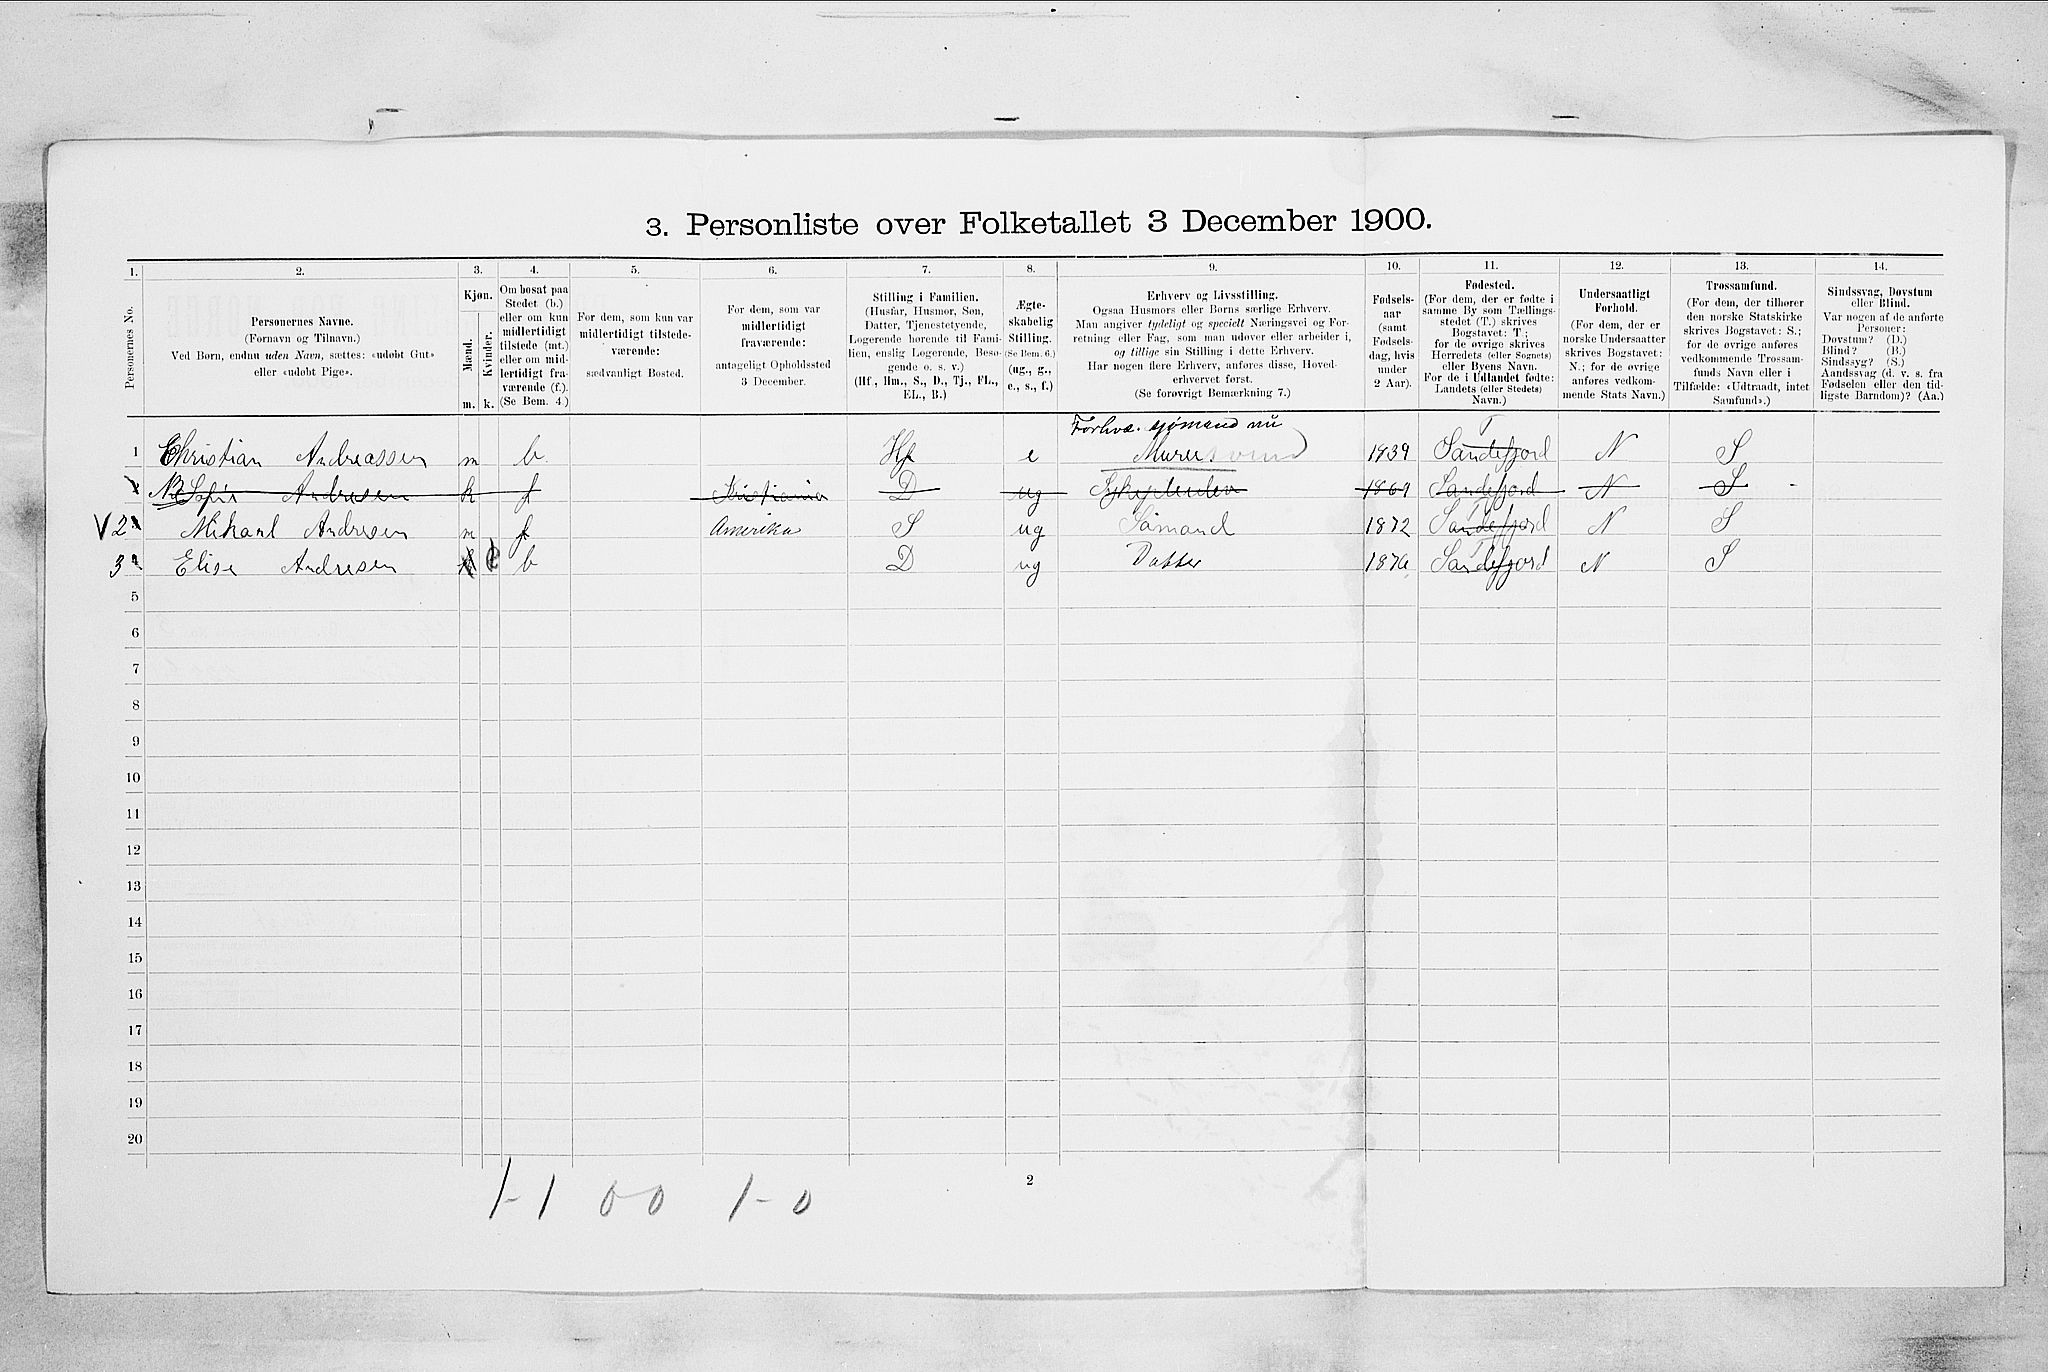 3. Personliste over Folketallet 3 December 1900.
1. 2. 3. 4. 5. 6. 7. 8. 9. 10. 11. 12. 13. 14.
Personernes No.
Personernes Navne.
(Fornavn og Tilnavn.)
Ved Børn, endnu uden Navn, sættes: «udøbt Gut»
eller «udøbt Pige».
Kjøn.
Mænd.
Kvinder.
m. k.
Om bosat paa
Stedet (b.)
eller om kun
midlertidigt
tilstede (mt.)
eller om mid-
lertidigt fra-
værende (f.).
(Se Bem. 4.)
For dem, som kun var
midlertidigt tilstede-
værende:
sædvanligt Bosted.
For dem, som var
midlertidigt
fraværende:
antageligt Opholdssted
3 December.
Stilling i Familien.
(Husfar, Husmor, Søn,
Datter, Tjenestetyende,
Logerende hørende til Fami-
lien, enslig Logerende, Besø-
gende o. s. v.)
(Hf., Hm., S., D., Tj., FL.,
EL., B.)
Ægte-
skabelig
Stilling.
(Se Bem. 6.)
(ug., g.,
e., s., f.)
Erhverv og Livsstilling.
Ogsaa Husmors eller Børns særlige Erhverv.
Man angiver tydeligt og specielt Næringsvei og For-
retning eller Fag, som man udøver eller arbeider i,
og tillige sin Stilling i dette Erhverv.
Har nogen flere Erhverv, anføres disse, Hoved-
erhvervet først.
(Se forøvrigt Bemærkning 7.)
Fødsels-
aar
(samt
Fødsels-
dag, hvis
under
2 Aar).
Fødested.
(For dem, der er fødte i
samme By som Tællings-
stedet (T.) skrives
Bogstavet: T.;
for de øvrige skrives
Herredets (eller Sognets)
eller Byens Navn.
For de i Udlandet fødte:
Landets (eller Stedets)
Navn.)
Undersaatligt
Forhold.
(For dem, der er
norske Undersaatter
skrives Bogstavet:
N.; for de øvrige
anføres vedkom-
mende Stats Navn.)
Trossamfund.
(For dem, der tilhører
den norske Statskirke
skrives Bogstavet: S.;
for de øvrige anføres
vedkommende Trossam-
funds Navn eller i
Tilfælde: «Udtraadt, intet
Samfund».)
Sindssvag, Døvstum
eller Blind.
Var nogen af de anførte
Personer:
Døvstum? (D.)
Blind? (B.)
Sindssyg? (S.)
Aandssvag (d. v. s. fra
Fødselen eller den tid-
ligste Barndom)? (Aa.)
Forhv. sjømand nu
1 Christian Andreassen m b. Hf e Murer 1839 T Sandefjord N S
Sofie Andresen k f Kristiania D ug 1869 Sandefjord N S
V 2 Mikael Andresen m f Amerika S ug Sømand 1872 T Sandefjord N S
3 Elise Andresen k b D ug Datter 1876 T Sandefjord N S
5
6
7
8
9
10
11
12
13
14
15
16
17
18
19
20
1-1 0-0 1-0
2